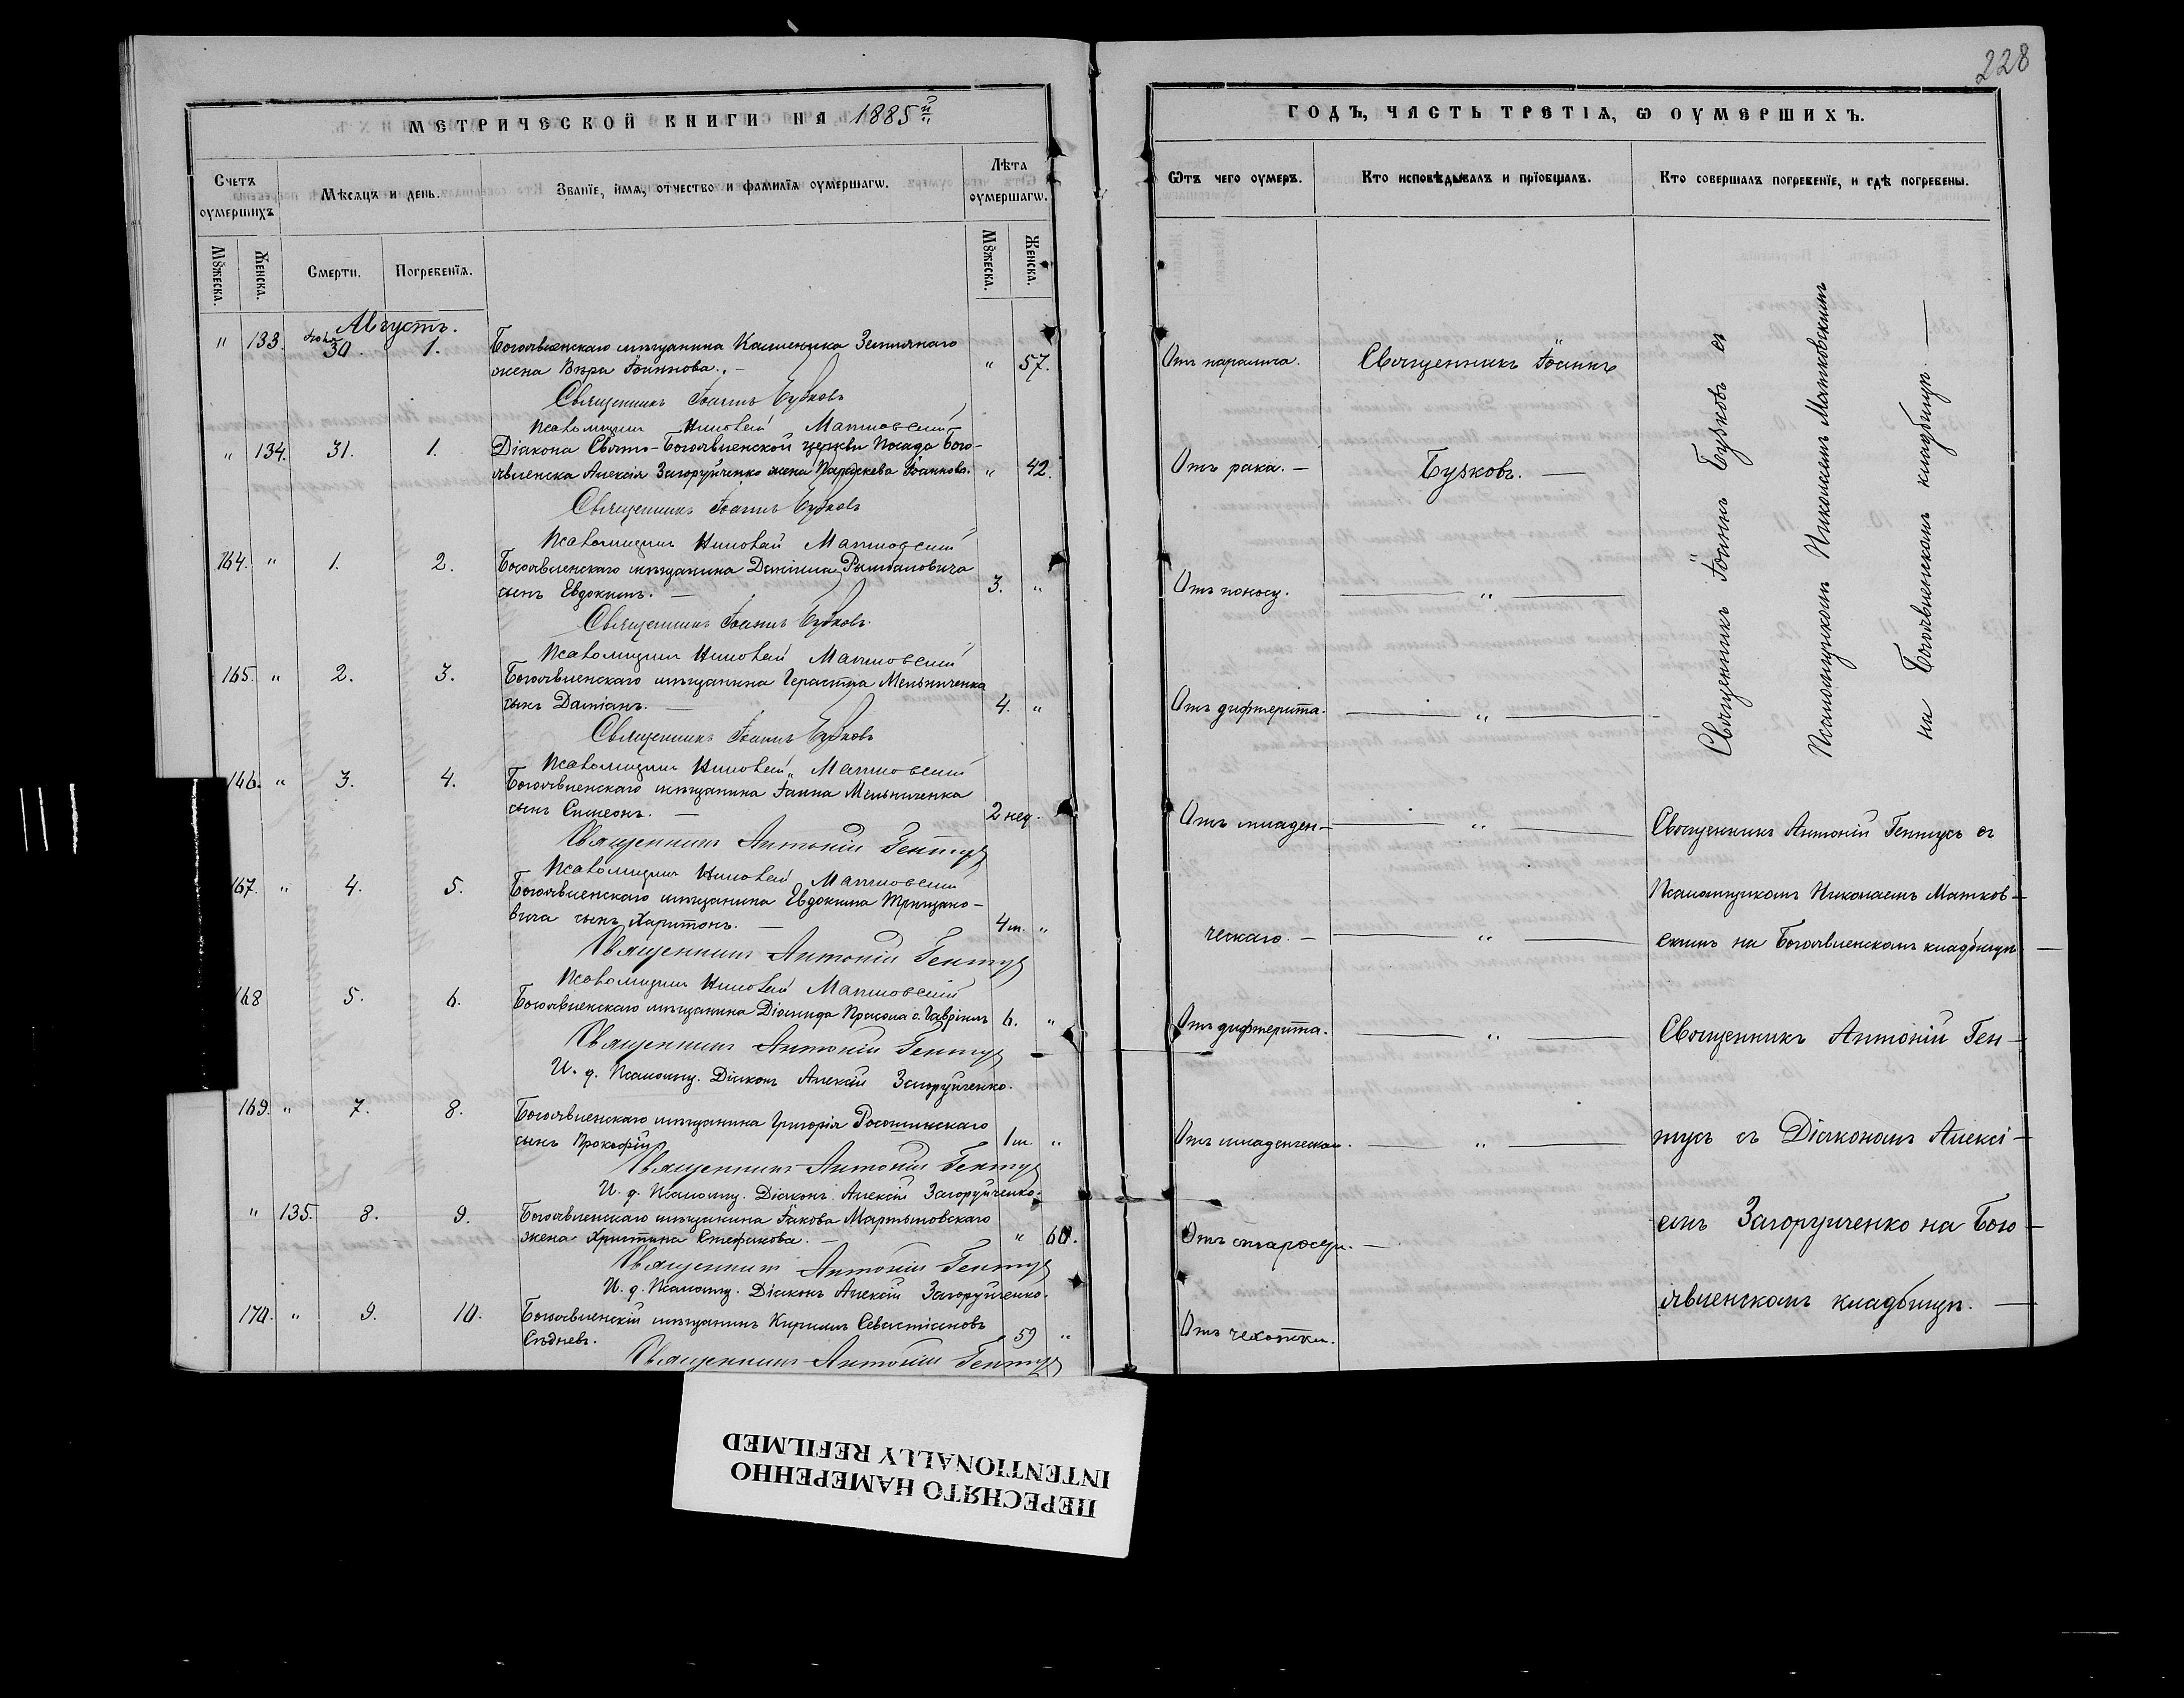 228
МЕТРИЧЕСКОЙ КНИГИ НА 1885й
Счетъ оумершихъ
Мѣсяцъ и день.
Званїе, имя, отчество и фамилїя оумершагѡ.
Лѣта оумершагѡ.
Мꙋжеска.
Женска.
Смерти.
Погребенїя.
Мꙋжеска.
Женска.
Августъ.
" 133. 30. 1. Богоявленскаго мѣщанина
жена Вѣра Іоаннова. " 57.
Священникъ Іоаннъ Бузковъ
Псаломщикъ Николай Матковскій
" 134. 31. 1. Діакона Свято-Богоявленской церкви Посада Бого-
явленска Алексія Загоруйченко жена Параскева Іоаннова. " 42.
Священникъ Іоаннъ Бузковъ
Псаломщикъ Николай Матковскій
164. " 1. 2. Богоявленскаго мѣщанина Даніила
сынъ Евдокимъ. 3. "
Священникъ Іоаннъ Бузковъ
Псаломщикъ Николай Матковскій
165. " 2. 3. Богоявленскаго мѣщанина Мельниченка
сынъ Даміанъ. 4. "
Священникъ Іоаннъ Бузковъ
Псаломщикъ Николай Матковскій
146. " 3. 4. Богоявленскаго мѣщанина Іанна Мельниченка
сынъ Симеонъ. 2 нед.
Священникъ Антоній Гентусъ
Псаломщикъ Николай Матковскій
167. " 4. 5. Богоявленскаго мѣщанина Евдокима
вича сынъ Харитонъ. 4 м. "
Священникъ Антоній Гентусъ
Псаломщикъ Николай Матковскій
168 5. 6. Богоявленскаго мѣщанина Діомида с. Гавріилъ 6. "
Священникъ Антоній Гентусъ
И. д. Псаломщ. Діаконъ Алексій Загоруйченко.
169. " 7. 8. Богоявленскаго мѣщанина Григорія
сынъ Прокофій 1 м. "
Священникъ Антоній Гентусъ
И. д. Псаломщ. Діаконъ Алексій Загоруйченко.
" 135. 8. 9. Богоявленскаго мѣщанина Іакова Мартыновскаго
жена Христина Стефанова. " 60.
Священникъ Антоній Гентусъ
И. д. Псаломщ. Діаконъ Алексій Загоруйченко.
170. " 9. 10. Богоявленскій мѣщанинъ Кириллъ Севастіановъ
59 "
Священникъ Антоній Гентусъ
ГОДЪ, ЧАСТЬ ТРЕТІЯ, Ѡ ОУМЕРШИХЪ.
Ѿтъ чего оумеръ.
Кто исповѣдывалъ и прїобщалъ.
Кто совершалъ погребенїе, и гдѣ погребены.
Отъ паралича.
Священникъ Іоаннъ
Отъ рака.
Бузковъ.
Отъ поносу. "
Отъ дифтерита. "
Отъ младен- "
ческаго. "
Отъ дифтерита. "
Отъ младенческаго. "
Отъ старости.
Отъ чехотки.
Священникъ Іоаннъ Бузковъ съ
Псаломщикомъ Николаемъ Матковскимъ
на Богоявленскомъ кладбищѣ.
Священникъ Антоній Гентусъ съ
Псаломщикомъ Николаемъ Матков-
скимъ на Богоявленскомъ кладбищѣ
Священникъ Антоній Ген-
тусъ съ Діакономъ Алексі-
емъ Загоруйченко на Бого-
явленскомъ кладбищѣ.
ПЕРЕСНЯТО НАМЕРЕННО
INTENTIONALLY REFILMED